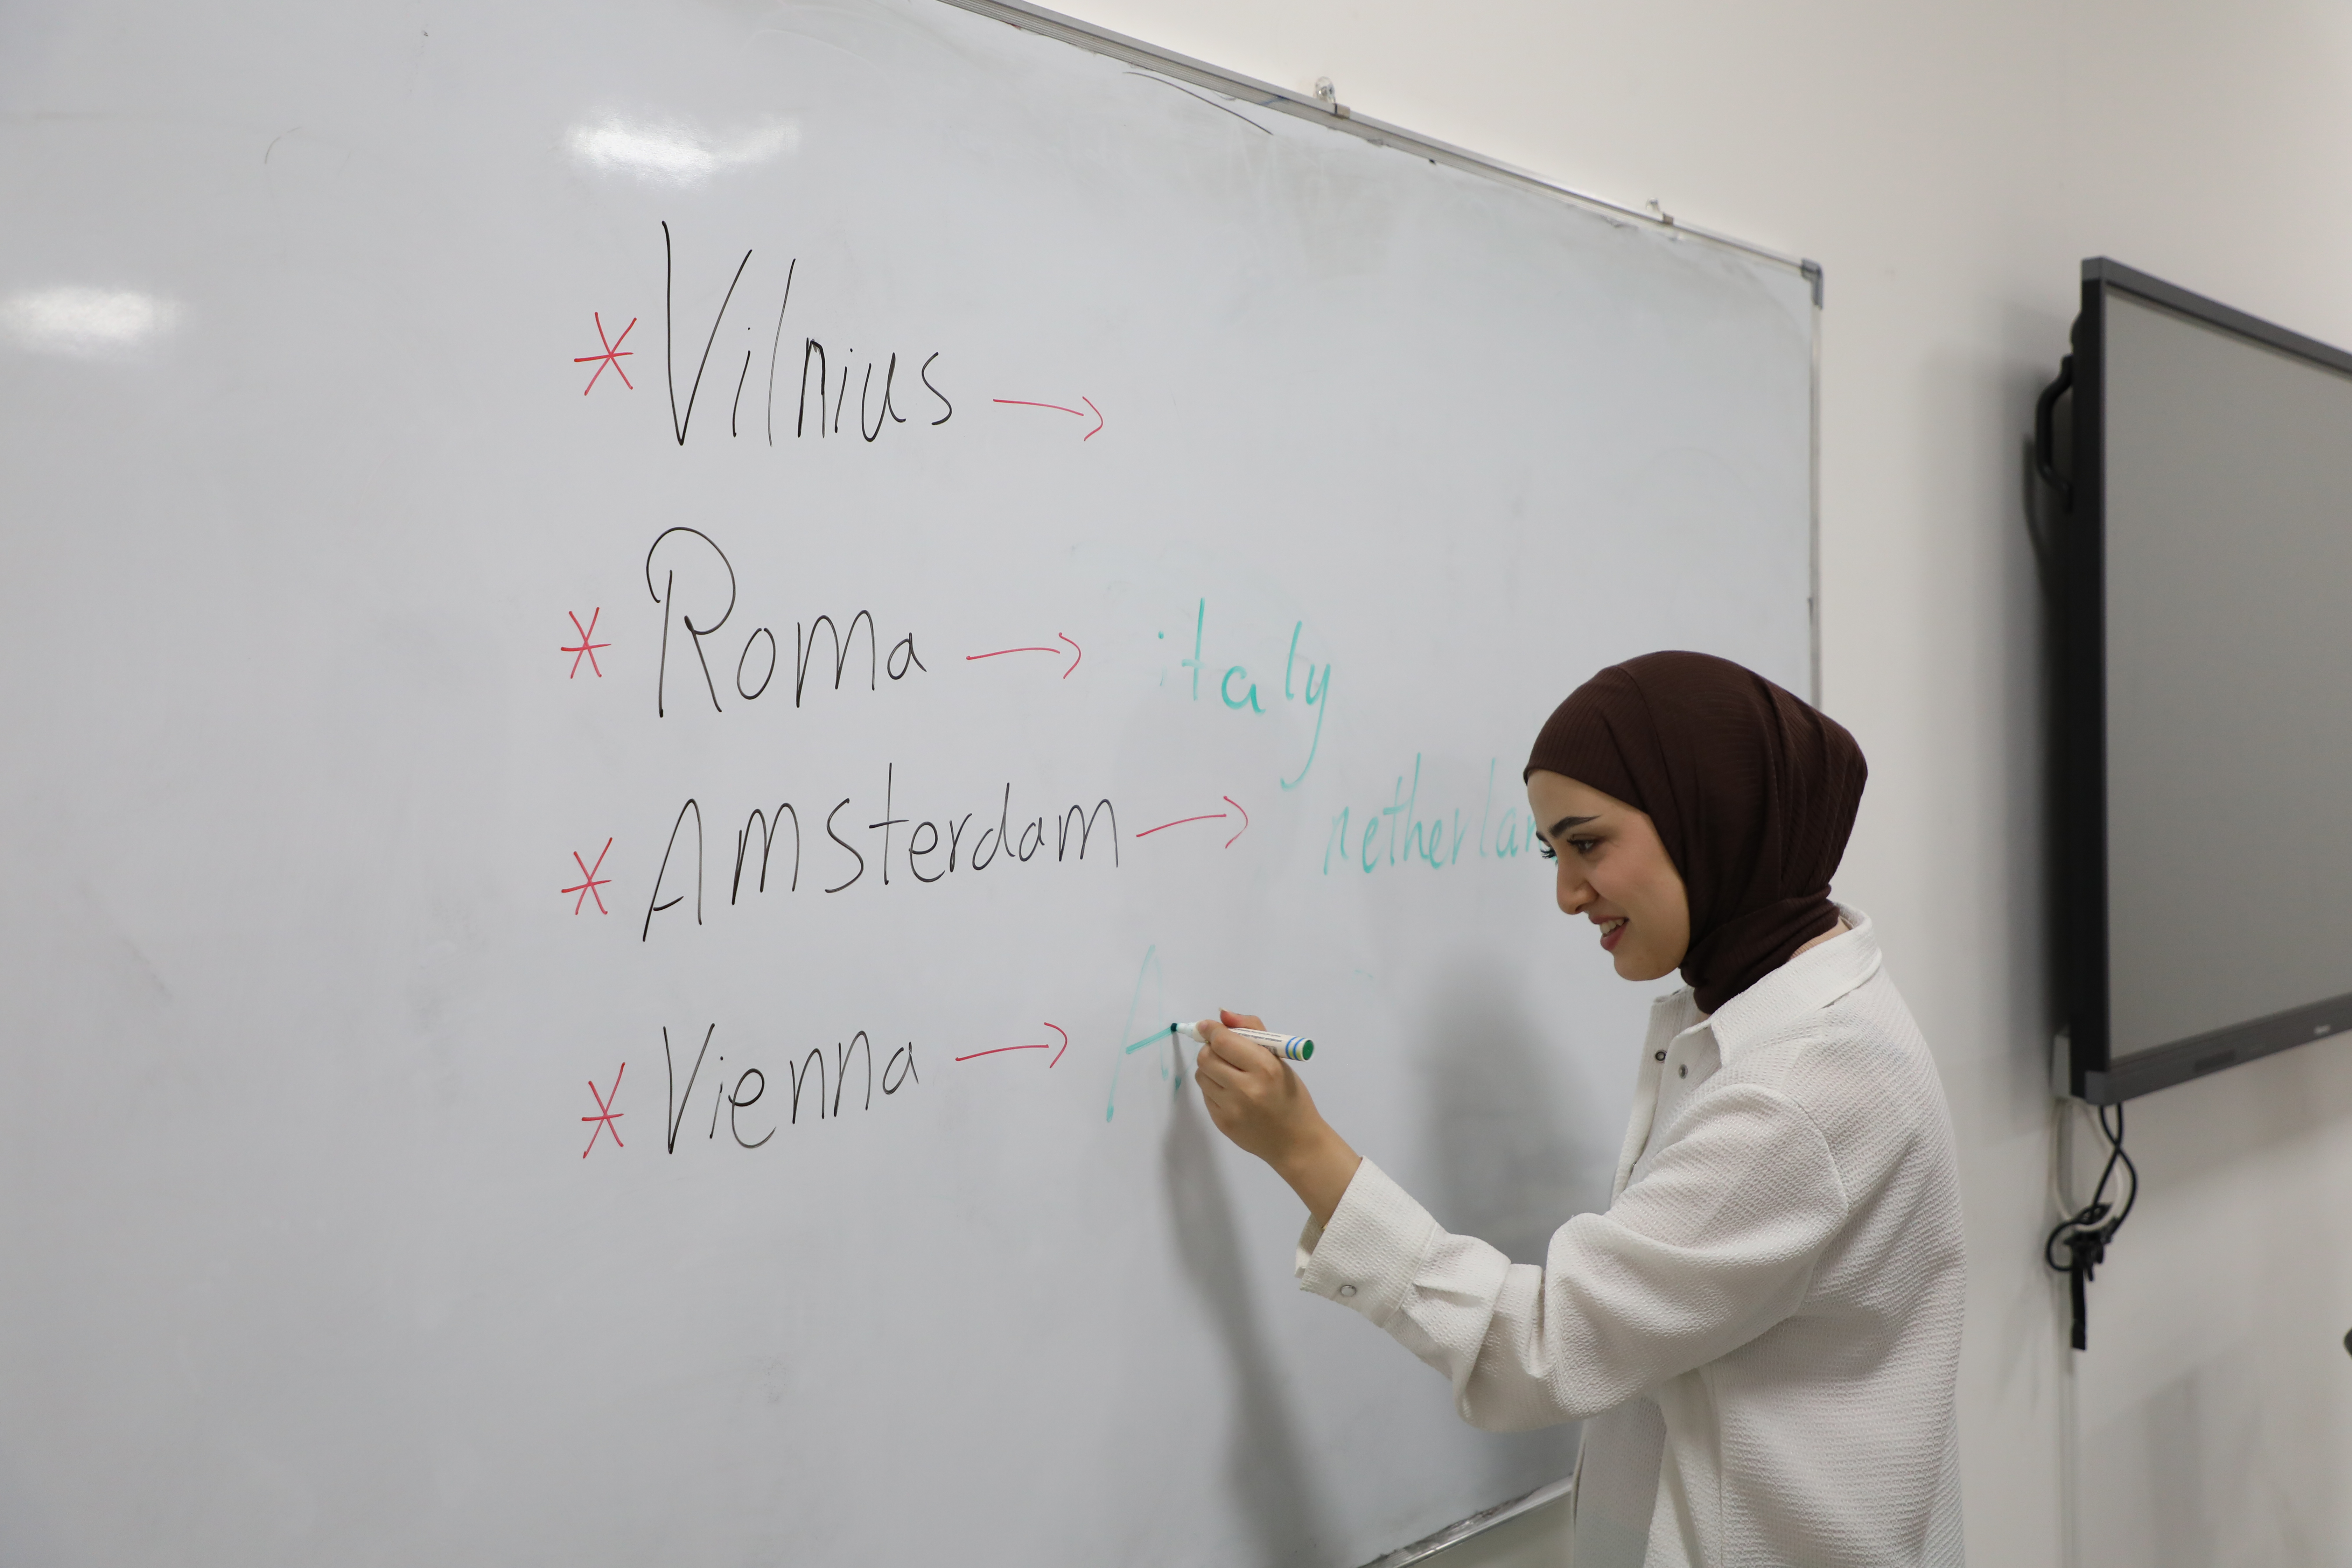 * Vilnius →
* Roma → italy
* Amsterdam → netherlan
* Vienna → A